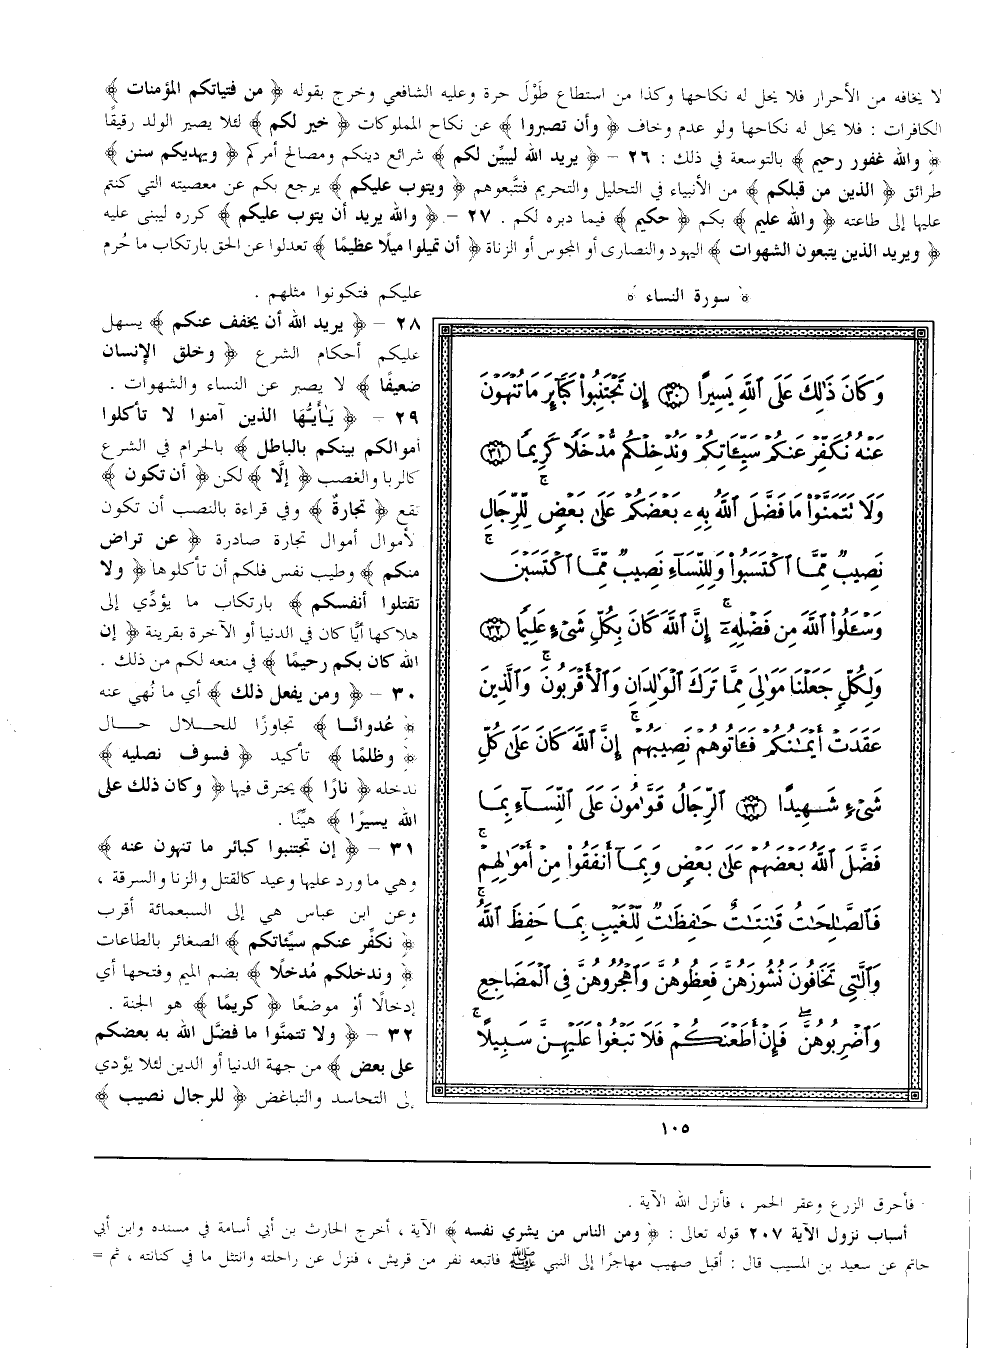 لا يخافه من الأحرار فلا يحل له نكاحها وكذا من استطاع طَوْلَ حرة وعليه الشافعي وخرج بقوله ﴿ من فتياتكم المؤمنات ﴾
الكافرات : فلا يحل له نكاحها ولو عدم وخاف ﴿ وأن تصبروا ﴾ عن نكاح المملوكات ﴿ خير لكم ﴾ لئلا يصير الولد رقيقًا
﴿ والله غفور رحيم ﴾ بالتوسعة في ذلك : ٢٦ – ﴿ يريد الله ليبيِّن لكم ﴾ شرائع دينكم ومصالح أمركم ﴿ ويهديكم سنن ﴾
طرائق ﴿ الذين من قبلكم ﴾ من الأنبياء في التحليل والتحريم فتتَّبعوهم ﴿ ويتوب عليكم ﴾ يرجع بكم عن معصيته التي كنتم
عليها إلى طاعته ﴿ والله عليم ﴾ بكم ﴿ حكيم ﴾ فيما دبره لكم . ٢٧ – ﴿ والله يريد أن يتوب عليكم ﴾ كرره ليبنى عليه
﴿ ويريد الذين يتبعون الشهوات ﴾ اليهود والنصارى أو المجوس أو الزناة ﴿ أن تميلوا ميلًا عظيمًا ﴾ تعدلوا عن الحق بارتكاب ما حُرم
عليكم فتكونوا مثلهم .
٢٨ – ﴿ يريد الله أن يخفف عنكم ﴾ يسهل
عليكم أحكام الشرع ﴿ وخلق الإنسان
ضعيفًا ﴾ لا يصبر عن النساء والشهوات .
٢٩ – ﴿ يَٰأَيُّها الذين آمنوا لا تأكلوا
أموالكم بينكم بالباطل ﴾ بالحرام في الشرع
كالربا والغصب ﴿ إلَّا ﴾ لكن ﴿ أن تكون ﴾
تقع ﴿ تجارةٌ ﴾ وفي قراءة بالنصب أن تكون
لأموال أموال تجارة صادرة ﴿ عن تراض
منكم ﴾ وطيب نفس فلكم أن تأكلوها ﴿ ولا
تقتلوا أنفسكم ﴾ بارتكاب ما يؤدِّي إلى
هلاكها أيًّا كان في الدنيا أو الآخرة بقرينة ﴿ إن
الله كان بكم رحيمًا ﴾ في منعه لكم من ذلك .
٣٠ – ﴿ ومن يفعل ذلك ﴾ أي ما نُهي عنه
﴿ عُدوانًا ﴾ تجاوزًا للحلال حال
﴿ وظلمًا ﴾ تأكيد ﴿ فسوف نصليه ﴾
ندخله ﴿ نارًا ﴾ يحترق فيها ﴿ وكان ذلك على
الله يسيرًا ﴾ هيِّنًا .
٣١ – ﴿ إن تجتنبوا كبائر ما تنهون عنه ﴾
وهي ما ورد عليها وعيد كالقتل والزنا والسرقة ،
وعن ابن عباس هي إلى السبعمائة أقرب
﴿ نكفِّر عنكم سيِّئاتكم ﴾ الصغائر بالطاعات
﴿ وندخلكم مُدخلًا ﴾ بضم الميم وفتحها أي
إدخالًا أوْ موضعًا ﴿ كريمًا ﴾ هو الجنة .
٣٢ – ﴿ ولا تتمنَّوا ما فضَّل الله به بعضكم
على بعض ﴾ من جهة الدنيا أو الدين لئلا يؤدي
إلى التحاسد والتباغض ﴿ للرجال نصيب ﴾
﴿ سورة النساء ﴾
وَكَانَ ذَٰلِكَ عَلَى ٱللَّهِ يَسِيرًا ۝٣٠ إِن تَجْتَنِبُوا۟ كَبَآئِرَ مَا تُنْهَوْنَ
عَنْهُ نُكَفِّرْ عَنكُمْ سَيِّـَٔاتِكُمْ وَنُدْخِلْكُم مُّدْخَلًا كَرِيمًا ۝٣١
وَلَا تَتَمَنَّوْا۟ مَا فَضَّلَ ٱللَّهُ بِهِۦ بَعْضَكُمْ عَلَىٰ بَعْضٍ ۚ لِّلرِّجَالِ
نَصِيبٌ مِّمَّا ٱكْتَسَبُوا۟ ۖ وَلِلنِّسَآءِ نَصِيبٌ مِّمَّا ٱكْتَسَبْنَ ۚ
وَسْـَٔلُوا۟ ٱللَّهَ مِن فَضْلِهِۦٓ ۗ إِنَّ ٱللَّهَ كَانَ بِكُلِّ شَىْءٍ عَلِيمًا ۝٣٢
وَلِكُلٍّ جَعَلْنَا مَوَٰلِىَ مِمَّا تَرَكَ ٱلْوَٰلِدَانِ وَٱلْأَقْرَبُونَ ۚ وَٱلَّذِينَ
عَقَدَتْ أَيْمَٰنُكُمْ فَـَٔاتُوهُمْ نَصِيبَهُمْ ۚ إِنَّ ٱللَّهَ كَانَ عَلَىٰ كُلِّ
شَىْءٍ شَهِيدًا ۝٣٣ ٱلرِّجَالُ قَوَّٰمُونَ عَلَى ٱلنِّسَآءِ بِمَا
فَضَّلَ ٱللَّهُ بَعْضَهُمْ عَلَىٰ بَعْضٍ وَبِمَآ أَنفَقُوا۟ مِنْ أَمْوَٰلِهِمْ ۚ
فَٱلصَّٰلِحَٰتُ قَٰنِتَٰتٌ حَٰفِظَٰتٌ لِّلْغَيْبِ بِمَا حَفِظَ ٱللَّهُ ۚ
وَٱلَّٰتِى تَخَافُونَ نُشُوزَهُنَّ فَعِظُوهُنَّ وَٱهْجُرُوهُنَّ فِى ٱلْمَضَاجِعِ
وَٱضْرِبُوهُنَّ ۖ فَإِنْ أَطَعْنَكُمْ فَلَا تَبْغُوا۟ عَلَيْهِنَّ سَبِيلًا ۗ
١٠٥
فأحرق الزرع وعقر الحمر ، فأنزل الله الآية .
أسباب نزول الآية ٢٠٧ قوله تعالى : ﴿ ومن الناس من يشري نفسه ﴾ الآية ، أخرج الحارث بن أبي أسامة في مسنده وابن أبي
حاتم عن سعيد بن المسيب قال : أقبل صهيب مهاجرًا إلى النبي ﷺ فاتبعه نفر من قريش ، فنزل عن راحلته وانتثل ما في كنانته ، ثم =